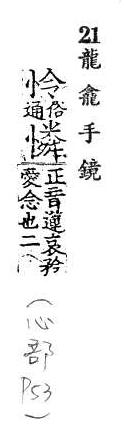 21龍龕手鏡
怜俗通憐正音蓮哀矜愛念也二
(心部P53)